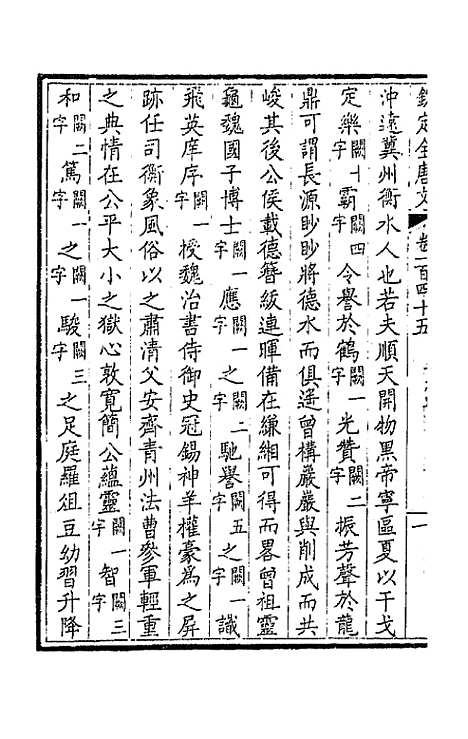 欽定全唐文 卷一百四十五 一
沖遠冀州衡水人也若夫順天開物黑帝寧區夏以干戈
定樂闕十字霸闕四字令譽於鶴闕一字光贊闕二字振芳聲於龍
鼎可謂長源眇眇將德水而俱遙曾構嚴嚴與削成而共
峻其後公侯載德簪紱連暉備在縑緗可得而畧曾祖靈
龜魏國子博士闕一字應闕一字之闕二字馳譽闕五字之闕一字識
飛英庠序闕一字授魏治書侍御史冠錫神羊權豪為之屏
跡任司衡象風俗以之肅清父安齊青州法曹參軍輕重
之典情在公平大小之獄心敦寬簡公蘊靈闕一字智闕三字
和闕二字篤闕一字之闕一字駿闕三字之足庭羅俎豆幼習升降